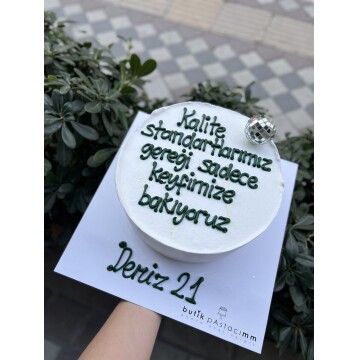 Kalite
standartlarımız
gereği sadece
keyfimize
bakıyoruz
Deniz 21
butik pastacımm